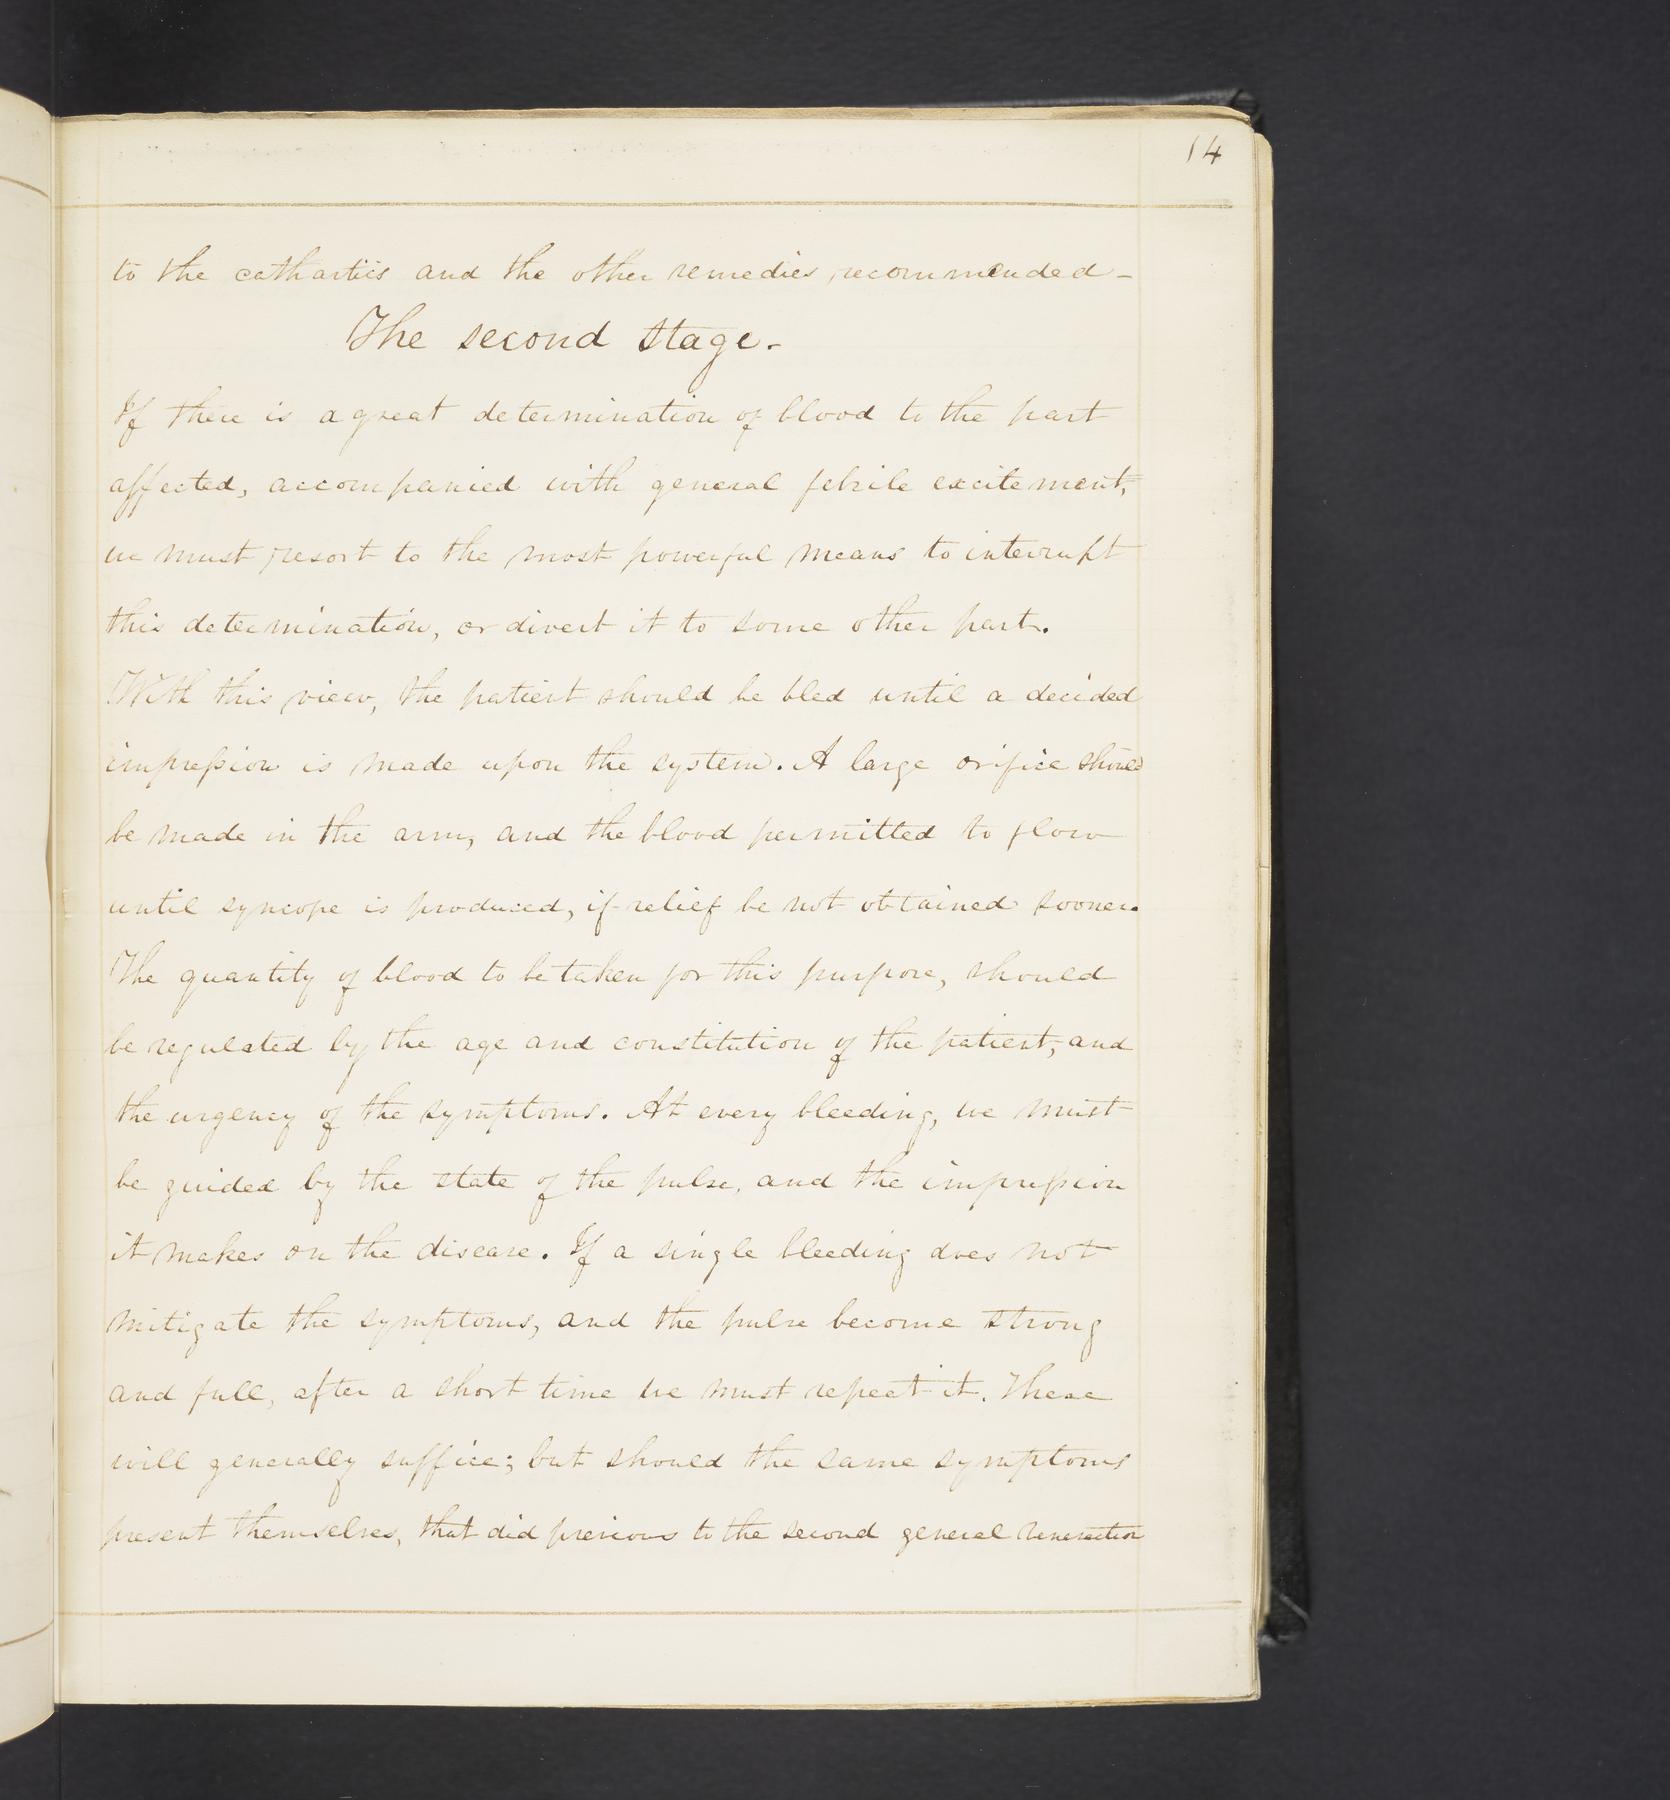 14
to the cathartics and the other remedies recommended-
The second stage.
If there is a great determination of blood to the part
affected, accompanied with general febrile excitement,
we must resort to the most powerful means to interrupt
this determination, or divert it to some other part.
With this view, the patient should be bled until a decided
impreſsion is made upon the system. A large orifice should
be made in the arm, and the blood permitted to flow
until syncope is produced, if relief be not obtained sooner.
The quantity of blood to be taken for this purpose, should
be regulated by the age and constitution of the patient, and
the urgency of the symptoms. At every bleeding, we must
be guided by the state of the pulse, and the impreſsion
it makes on the disease. If a single bleeding does not
mitigate the symptoms, and the pulse become strong
and full, after a short time we must repeat it. These
will generally suffice; but should the same symptoms
present themselves, that did previous to the second general venesection